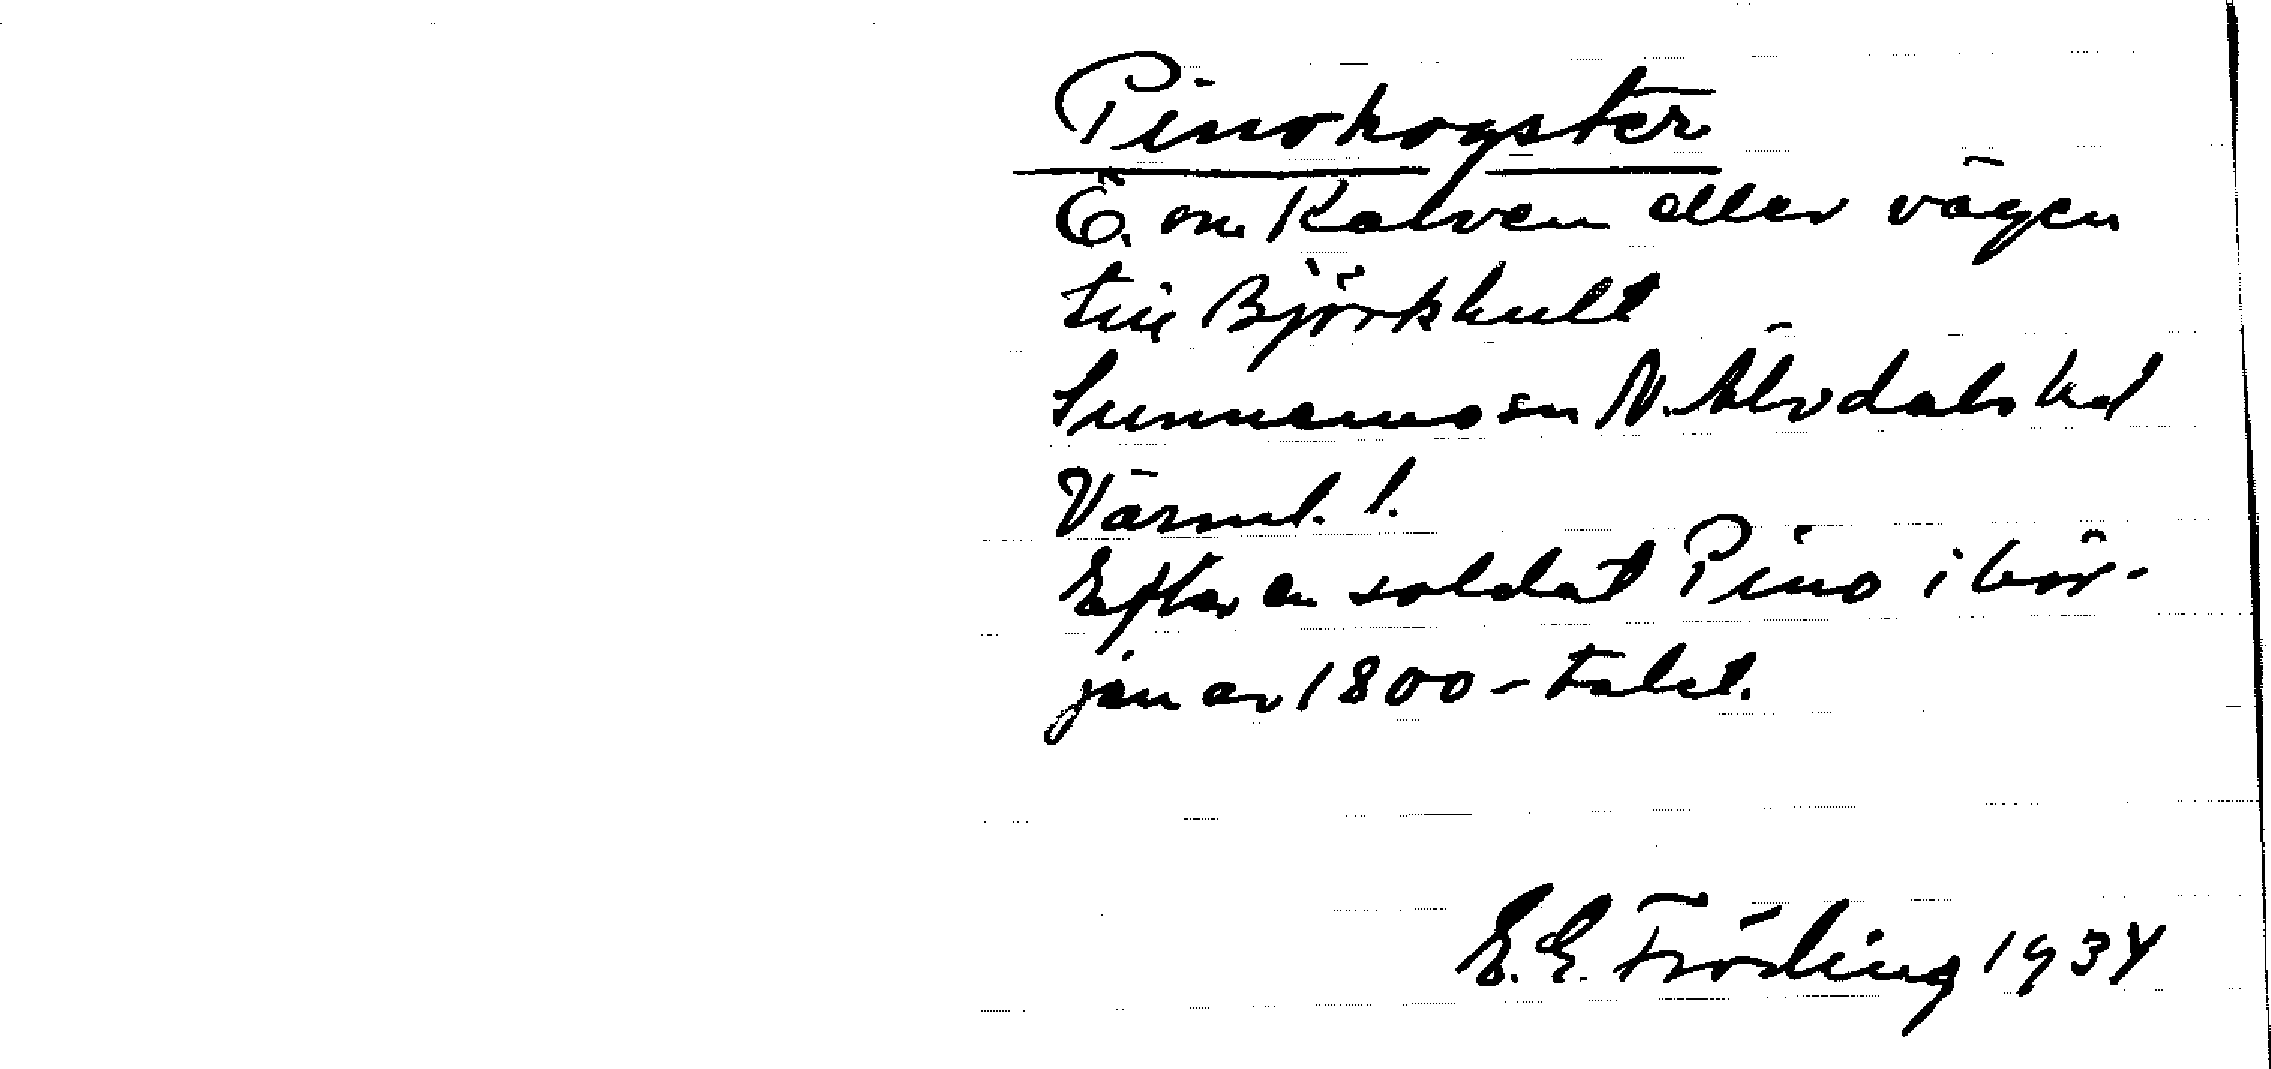 Pinohogster
Ö. om Kalven eller vägen
till Björkhult
Sunnemo sn N. Älvdals hd
Värml. l.
Efter en soldat Pino i bör-
jan av 1800-talet.
E. E. Fröding 1934